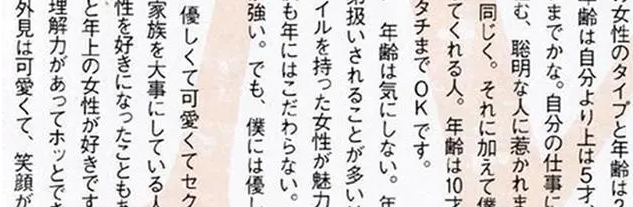 な女性のタイプと年齢は？
年齢は自分より上は5才、
までかな。自分の仕事に
む、聡明な人に惹かれま
同じく。それに加えて僕
てくれる人。年齢は10才
タチまでOKです。
年齢は気にしない。年
扱いされることが多い
イルを持った女性が魅力
も年にはこだわらない。
強い。でも、僕には優し
優しくて可愛くてセク
家族を大事にしている人
性を好きになったこともあ
と年上の女性が好きです
理解力があってホッとでき
外見は可愛くて、笑顔が